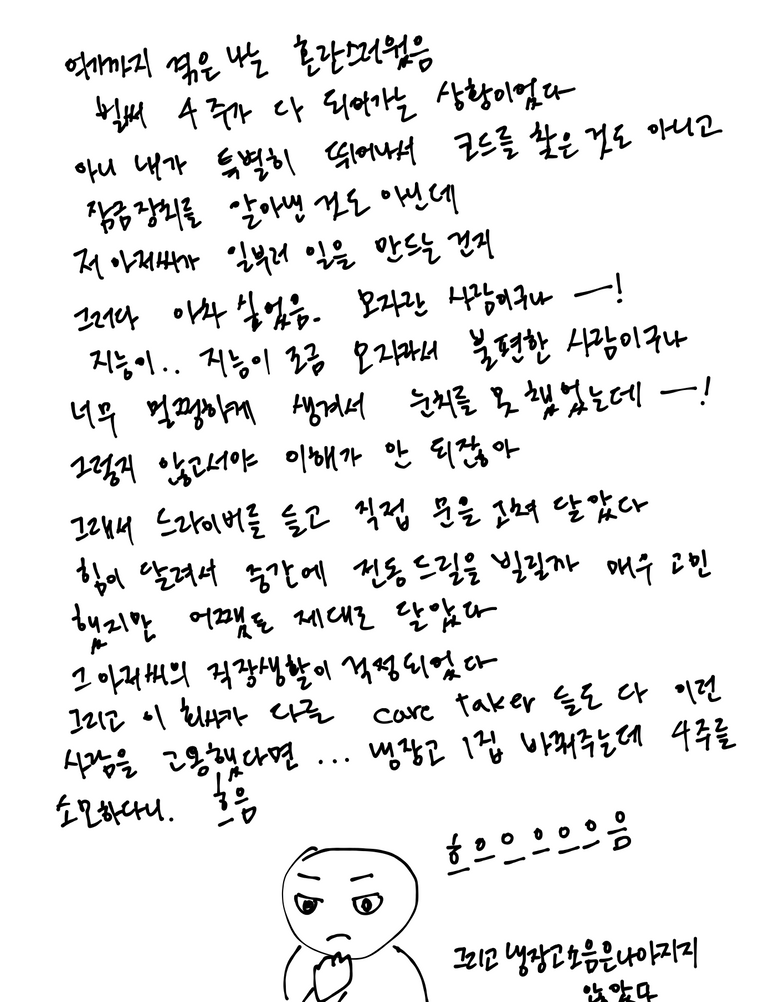 여기까지 겪은 나는 혼란스러웠음
벌써 4주가 다 되어가는 상황이었다
아니 내가 특별히 뛰어나서 코드를 찾은 것도 아니고
잠금장치를 알아낸 것도 아닌데
저 아저씨가 일부러 일을 만드는 건지
그러다 아차 싶었음. 모자란 사람이구나 —!
지능이.. 지능이 조금 모자라서 불편한 사람이구나
너무 멀쩡하게 생겨서 눈치를 못 챘었는데 —!
그렇지 않고서야 이해가 안 되잖아
그래서 드라이버를 들고 직접 문을 고쳐 달았다
힘이 달려서 중간에 전동드릴을 빌릴까 매우 고민
했지만 어쨌든 제대로 달았다
그 아저씨의 직장생활이 걱정되었다
그리고 이 회사가 다른 care taker 들도 다 이런
사람을 고용했다면 ... 냉장고 1집 바꿔주는데 4주를
소모하다니. 흐음
흐으으으으으음
그리고 냉장고소음은나아지지
않았다